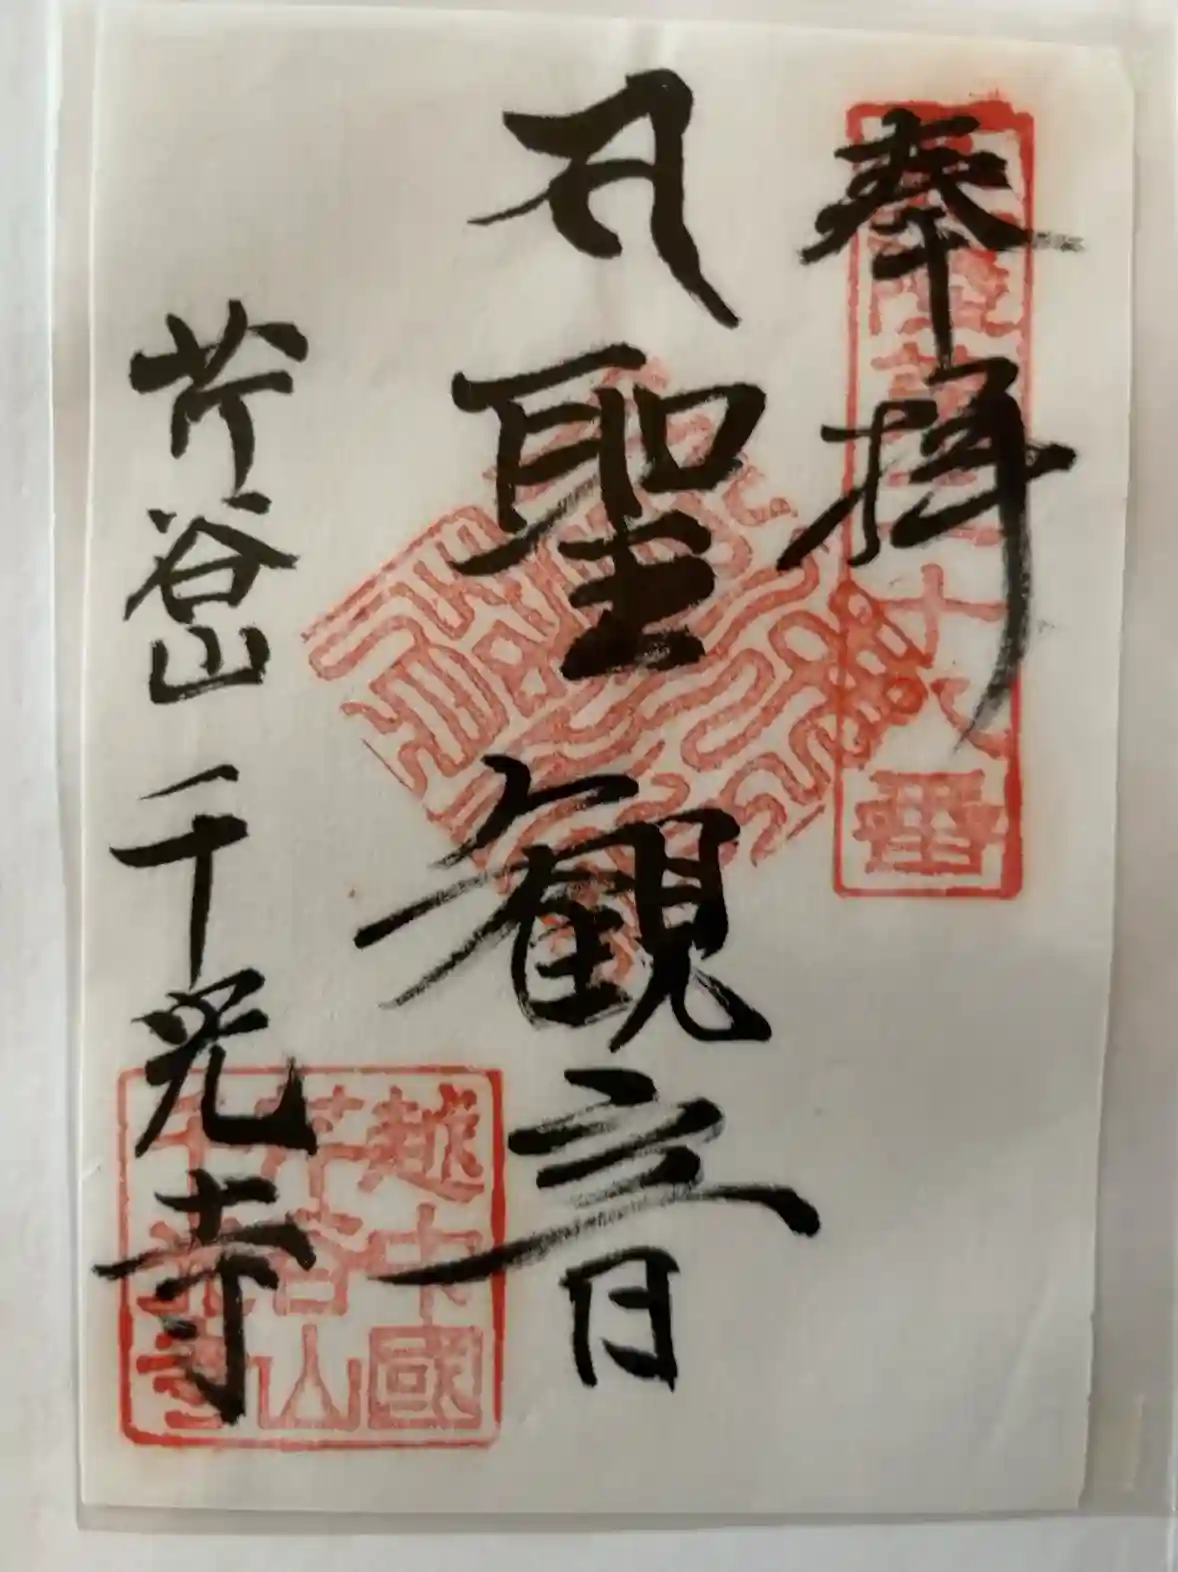 奉拝
十八番
𑖭 聖観音
芹谷山 千光寺
越中國
芹谷山
千光寺